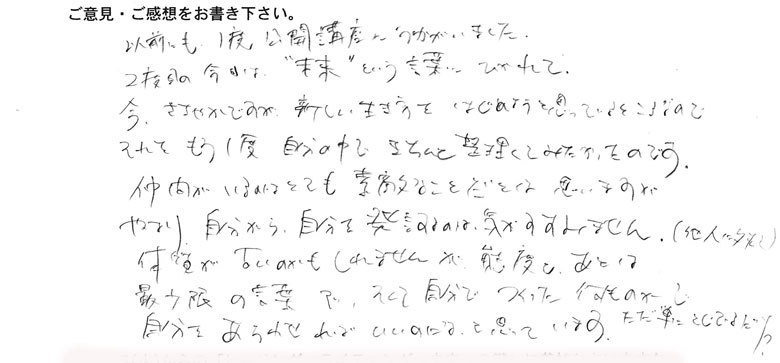 ご意見・ご感想をお書き下さい。
以前にも、1度、公開講座にうかがいました。
2度目の今日は、"未来"という言葉にひかれて。
今、ささやかですが、新しい生き方をはじめようと思っているところなので
それをもう1度自分の中できちんと整理してみたかったのです。
仲間がいるのはとても素敵なことだとは思いますが
やはり自分から、自分を発言するのは、気がすすみません。(他人に対して)
体質が古いのかもしれませんが、態度と、あとは
最少限の言葉で、そして自分でつくった何ものかで
自分をあらわせればいいのになと思っています。ただ単に